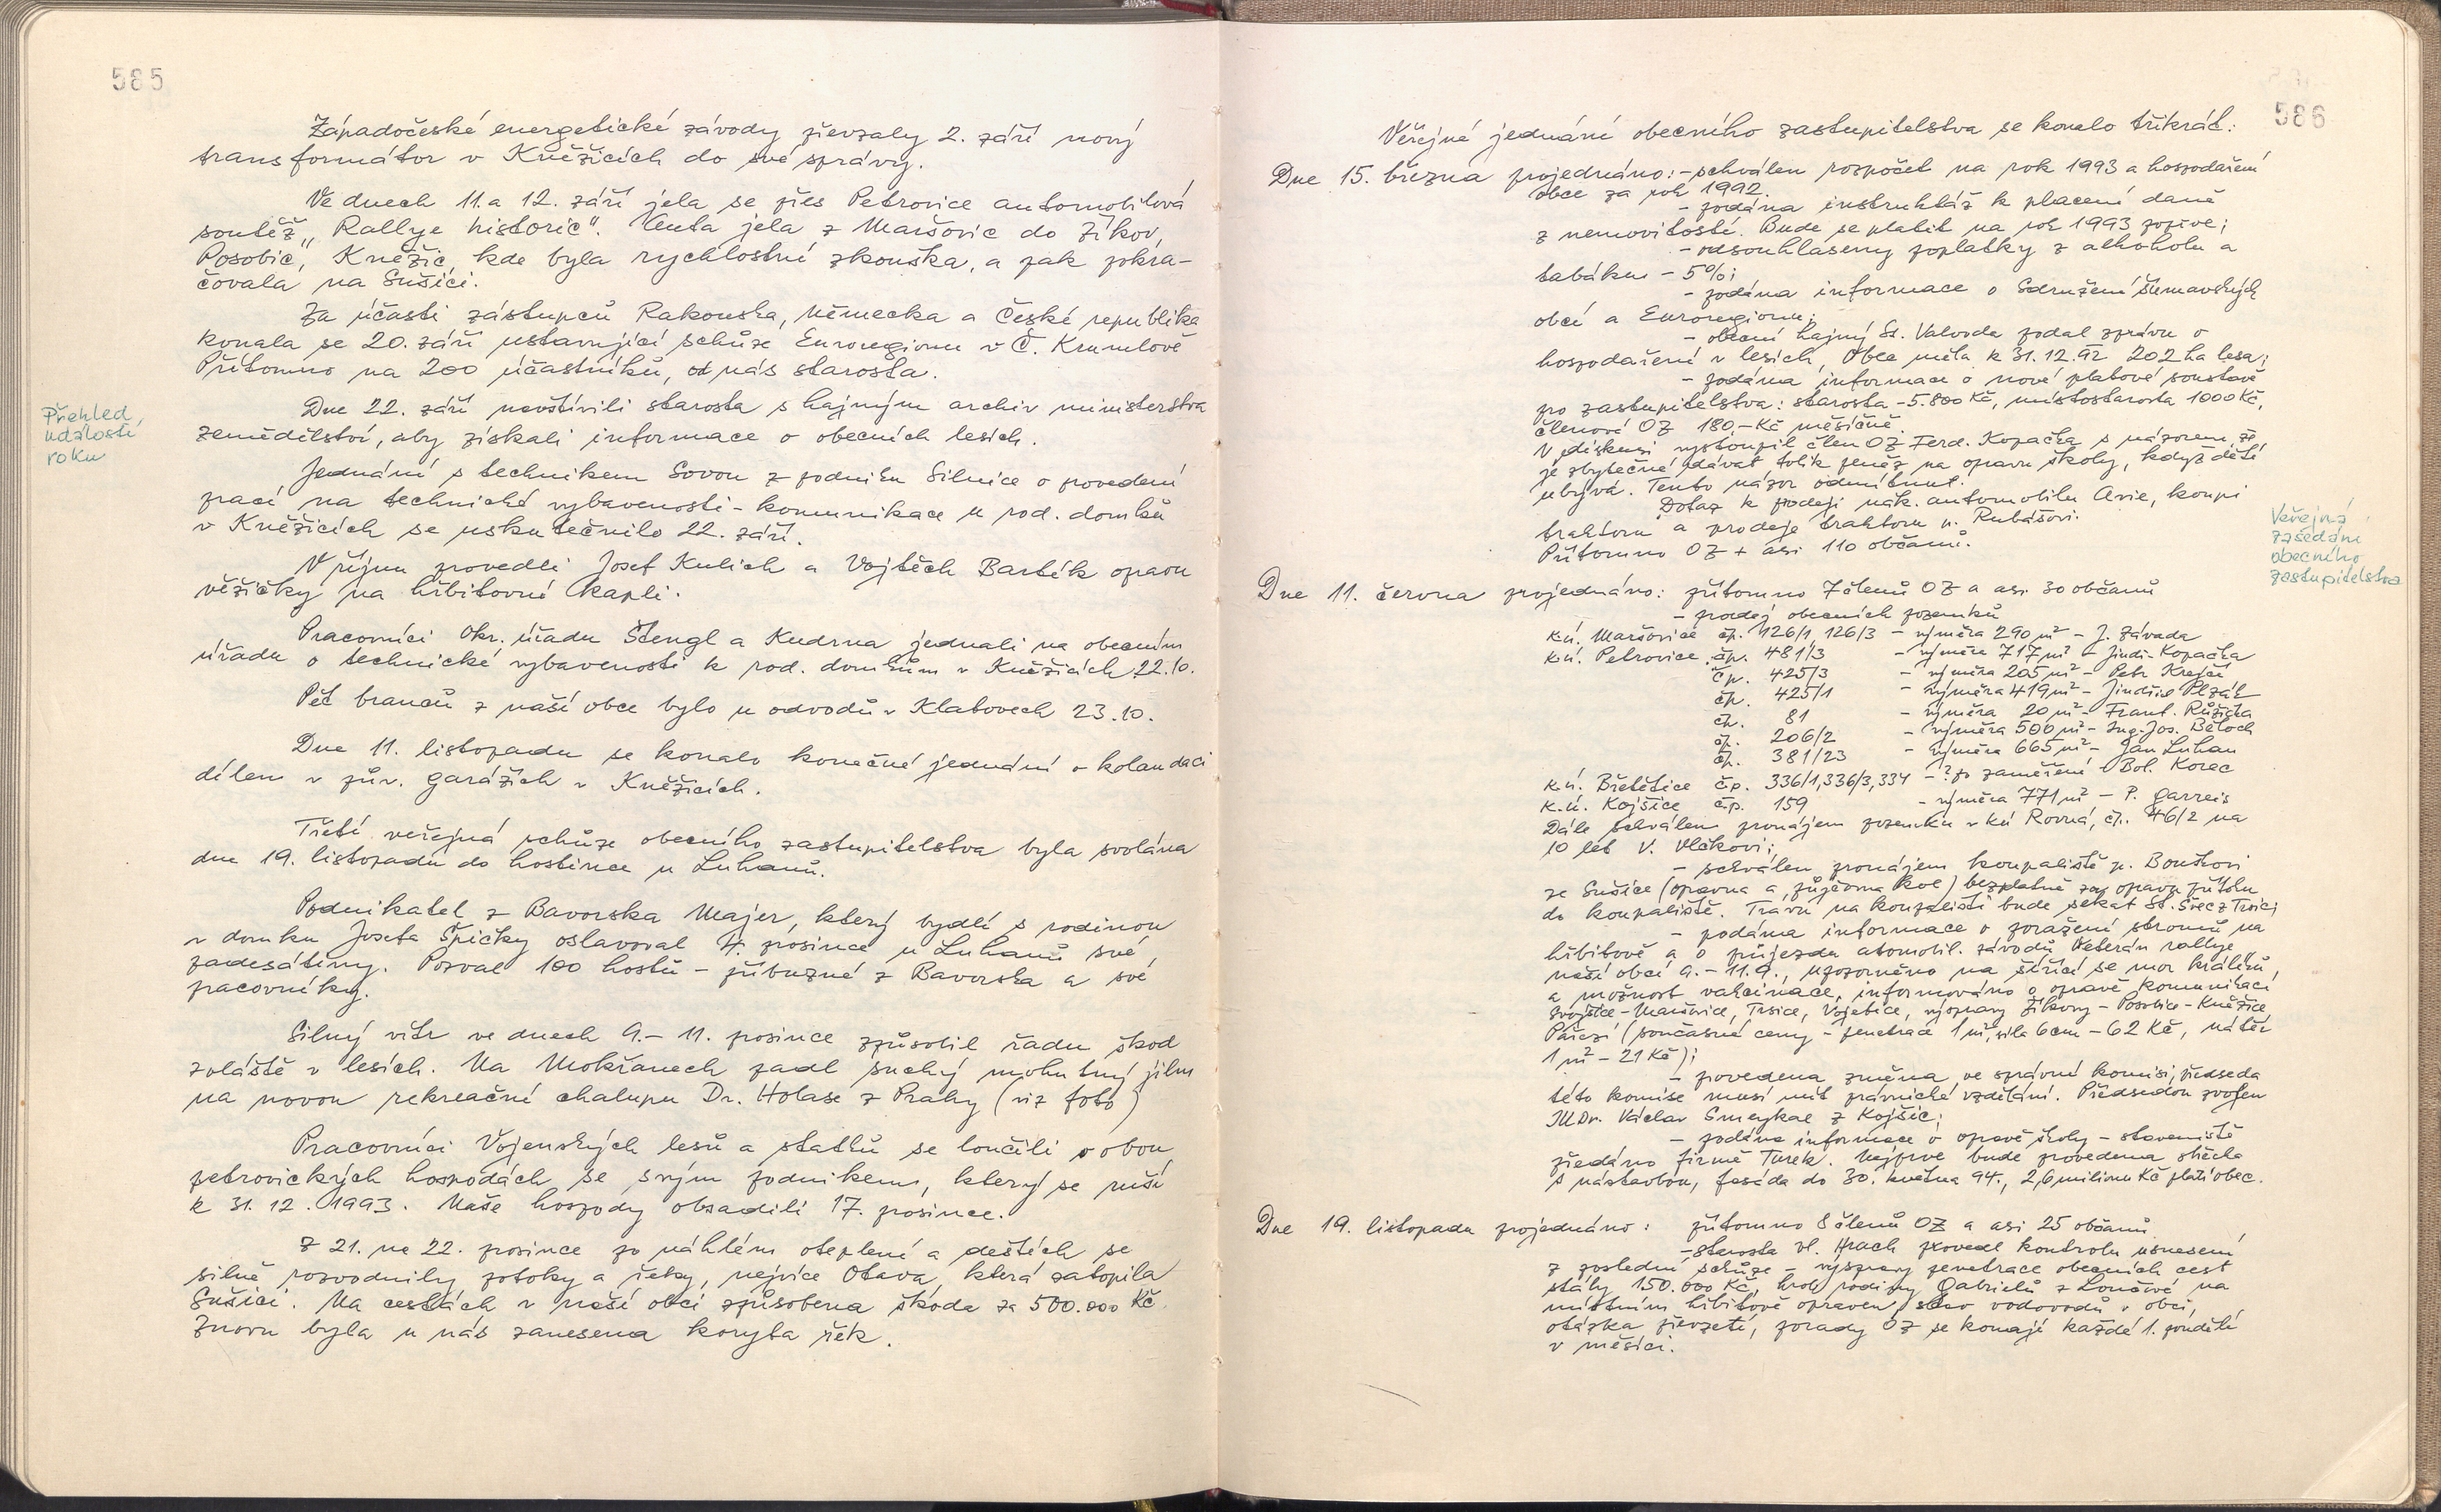 585
Západočeské energetické závody převzaly 2. září nový
transformátor v Kněžicích do své správy.
Ve dnech 11. a 12. září jela se přes Petrovice automobilová
soutěž „Rallye historic". Cesta jela z Maršovic do Žikov,
Posobic, Kněžic, kde byla rychlostní zkouška, a pak pokra-
čovala na Sušici.
Za účasti zástupců Rakouska, Německa a České republiky
konala se 20. září ustavující schůze Euroregionu v Č. Krumlově
Přítomno na 200 účastníků, od nás starosta.
Přehled
událostí
roku
Dne 22. září navštívili starosta s hajným archiv ministerstva
zemědělství, aby získali informace o obecních lesích.
Jednání s technikem Sovou z podniku Silnice o provedení
prací na technické vybavenosti - komunikace u rod. domků
v Kněžicích se uskutečnilo 22. září.
V říjnu provedli Josef Kulich a Vojtěch Barták opravu
věžičky na hřbitovní kapli.
Pracovníci Okr. úřadu Štengl a Kudrna jednali na obecním
úřadu o technické vybavenosti k rod. domkům v Kněžicích 22.10.
Pět branců z naší obce bylo u odvodů v Klatovech 23.10.
Dne 11. listopadu se konalo konečné jednání o kolaudaci
dílen v pův. garážích v Kněžicích.
Třetí veřejná schůze obecního zastupitelstva byla svolána
dne 19. listopadu do hostince u Luhanů.
Podnikatel z Bavorska Majer, který bydlí s rodinou
v domku Josefa Špičky oslavoval 4. prosince u Luhanů své
padesátiny. Pozval 100 hostů - příbuzné z Bavorska a své
pracovníky.
Silný vítr ve dnech 9.- 11. prosince způsobil řadu škod
zvláště v lesích. Na Mokřanech padl suchý mohutný jilm
na novou rekreační chalupu Dr. Holase z Prahy (viz foto)
Pracovníci Vojenských lesů a statků se loučili v obou
petrovických hospodách se svým podnikem, který se ruší
k 31. 12. 1993. Naše hospody obsadili 17. prosince.
Z 21. na 22. prosince po náhlém oteplení a deštích se
silně rozvodnily potoky a řeky, nejvíce Otava, která zatopila
Sušici. Na cestách v naší obci způsobena škoda za 500.000 Kč.
Znovu byla u nás zanesena koryta řek.
586
Veřejné jednání obecního zastupitelstva se konalo třikrát:
Dne 15. března projednáno: - schválen rozpočet na rok 1993 a hospodaření
obce za rok 1992.
- podána instruktáž k placení daně
z nemovitostí. Bude se platit na rok 1993 poprve;
- odsouhlaseny poplatky z alkoholu a
tabáku - 5%;
- podána informace o Sdružení šumavských
obcí a Euroregionu;
- obecní hajný St. Valvoda podal zprávu o
hospodaření v lesích, Obec měla k 31.12.92 202 ha lesa;
- podána informace o nové platové soustavě
pro zastupitelstva: starosta - 5.800 Kč, místostarosta 1000 Kč,
členové OZ 180,- Kč měsíčně.
V diskusi vystoupil člen OZ Ferd. Kopačka s názorem, že
je zbytečné dávat tolik peněz na opravu školy, když dětí
ubývá. Tento názor odmítnut.
Dotaz k prodeji nák. automobilu Avie, koupi
traktoru a prodeje traktoru p. Rubášovi.
Přítomno OZ + asi 110 občanů.
Veřejná
zasedání
obecního
zastupitelstva
Dne 11. června projednáno: přítomno 7 členů OZ a asi 30 občanů
- prodej obecních pozemků
k.ú. Maršovice čp. 126/1, 126/3 - výměra 290 m² - J. Závada
k.ú. Petrovice čp. 481/3 - výměra 717 m² - Jindř. Kopačka
čp. 425/3 - výměra 205 m² - Petr Krejčí
čp. 425/1 - výměra 419 m² - Jindřich Plzák
čp. 81 - výměra 20 m² - Frant. Růžička
čp. 206/2 - výměra 500 m² - Ing. Jos. Běloch
čp. 381/23 - výměra 665 m² - Jan Luhan
k.ú. Břetětice čp. 336/1, 336/3, 334 - ? po zaměření - Bol. Korec
k.ú. Kojšice čp. 159 - výměra 771 m² - P. Garreis
Dále schválen pronájem pozemku v kú Rovná, čp. 46/2 na
10 let V. Vlčkovi;
- schválen pronájem koupaliště p. Bouškovi
ze Sušice (opravna a půjčovna kol) bezplatně za opravu přítoku
do koupaliště. Trávu na koupališti bude sekat St. Švec z Trsic;
- podána informace o poražení stromů na
hřbitově a o průjezdu atomobil. závodů Veterán rallye
naší obcí 9. - 11.9., upozorněno na šířící se mor králíků,
a možnost vakcinace, informováno o opravě komunikací
Svojšice - Maršovice, Trsice, Vojetice, výspravy Žikovy - Posobice - Kněžice
Pařezí (současné ceny - penetrace 1 m², síla 6cm - 62 Kč, nátěr
1 m² - 21 Kč);
- provedena změna ve správní komisi, předseda
této komise musí mít právnické vzdělání. Předsedou zvolen
JUDr. Václav Smejkal z Kojšic;
- podána informace o opravě školy - staveniště
předáno firmě Turek. Nejprve bude provedena střecha
s nástavbou, fasáda do 30. května 94., 2,6 milionu Kč platí obec.
Dne 19. listopadu projednáno: přítomno 8 členů OZ a asi 25 občanů
- starosta Vl. Hrach provedl kontrolu usnesení
z poslední schůze - výspravy penetrace obecních cest
stály 150.000 Kč, hrob rodiny Gabrielů z Loučové na
místním hřbitově opraven, stav vodovodů v obci,
otázka převzetí, porady OZ se konají každé 1. pondělí
v měsíci.